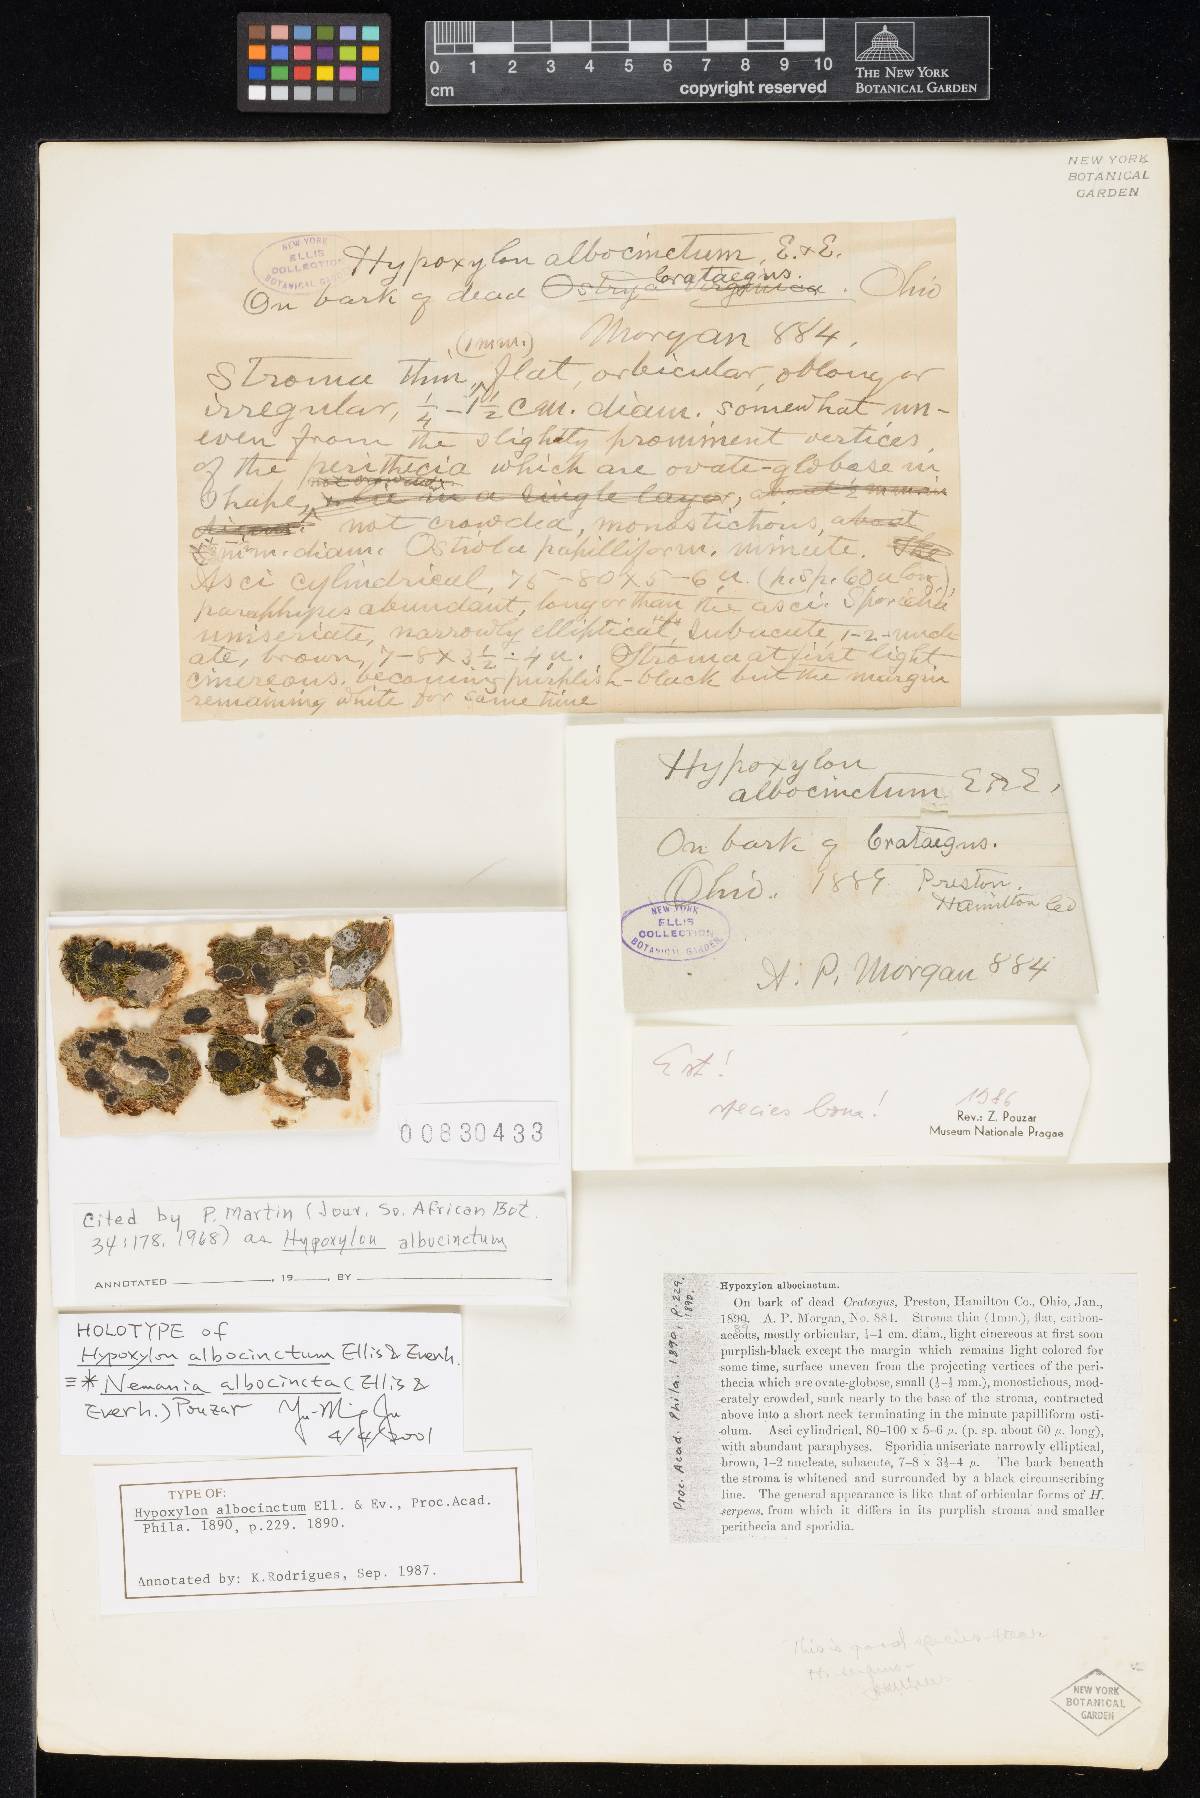 0 1 2 3 4 5 6 7 8 9 10
cm
copyright reserved
THE NEW YORK
BOTANICAL GARDEN
NEW YORK
BOTANICAL
GARDEN
NEW YORK
ELLIS
COLLECTION
BOTANICAL GARDEN
Hypoxylon albocinctum, E.&E.
Crataegus.
On bark of dead Ostrya Virginica. Ohio
Morgan 884.
(1 mm.)
Stroma thin, flat, orbicular, oblong or
irregular, ¼-1½ cm. diam. somewhat un-
even from the slightly prominent vertices
of the perithecia which are ovate-globose in
not crowded
shape, lie in a single layer, about ½ mm in
diam. not crowded, monostichous, about
½ mm. diam. Ostiola papilliform, minute. The
Asci cylindrical, 75-80 x 5-6 u. (p.sp. 60 u long),
paraphyses abundant, longer than the asci. Sporidia
uniseriate, narrowly elliptical, subacute, 1-2-nucle-
ate, brown, 7-8 x 3½-4 u. Stroma at first light
cinereous, becoming purplish-black but the margin
remaining white for some time
Hypoxylon
albocinctum E & E,
On bark of Crataegus.
Ohio. 1889 Preston,
Hamilton Co
NEW YORK
ELLIS
COLLECTION
BOTANICAL GARDEN
A. P. Morgan 884
Est!
species bona!
1986
Rev.: Z. Pouzar
Museum Nationale Pragae
00830433
Cited by P. Martin (Jour. So. African Bot.
34:178, 1968) as Hypoxylon albocinctum
ANNOTATED , 19 , BY
HOLOTYPE of
Hypoxylon albocinctum Ellis & Everh.
≡ * Nemania albocincta (Ellis &
Everh.) Pouzar Yu-Ming Ju
4/4/2001
TYPE OF:
Hypoxylon albocinctum Ell. & Ev., Proc.Acad.
Phila. 1890, p.229. 1890.
Annotated by: K.Rodrigues, Sep. 1987.
Proc. Acad. Phila. 1890, p.229.
1890.
Hypoxylon albocinctum.
On bark of dead Cratægus, Preston, Hamilton Co., Ohio, Jan.,
1890. A. P. Morgan, No. 884. Stroma thin (1mm.), flat, carbon-
89
aceous, mostly orbicular, ¼-1 cm. diam., light cinereous at first soon
purplish-black except the margin which remains light colored for
some time, surface uneven from the projecting vertices of the peri-
thecia which are ovate-globose, small (⅓-½ mm.), monostichous, mod-
erately crowded, sunk nearly to the base of the stroma, contracted
above into a short neck terminating in the minute papilliform osti-
olum. Asci cylindrical, 80-100 x 5-6 μ. (p. sp. about 60 μ. long),
with abundant paraphyses. Sporidia uniseriate narrowly elliptical,
brown, 1-2 nucleate, subacute, 7-8 x 3½-4 μ. The bark beneath
the stroma is whitened and surrounded by a black circumscribing
line. The general appearance is like that of orbicular forms of H.
serpens, from which it differs in its purplish stroma and smaller
perithecia and sporidia.
This is good species near
H. serpens
NEW YORK
BOTANICAL
GARDEN